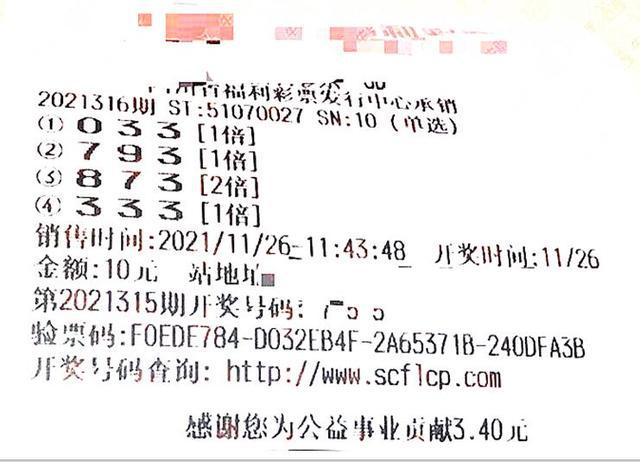 省福利彩票发行中心承销
2021316期 ST:51070027 SN:10 (单选)
(1) 0 3 3 [1倍]
(2) 7 9 3 [1倍]
(3) 8 7 3 [2倍]
(4) 3 3 3 [1倍]
销售时间:2021/11/26-11:43:48 开奖时间:11/26
金额:10元 站地址
第2021315期开奖号码:
验票码:F0EDE784-D032EB4F-2A65371B-240DFA3B
开奖号码查询: http://www.scflcp.com
感谢您为公益事业贡献3.40元